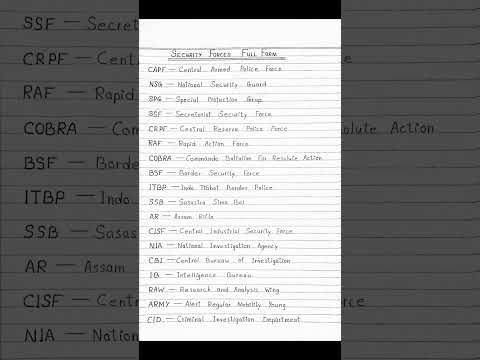 SECURITY FORCES FULL FORM
CAPF — Central Armed Police Force
NSG — National Security Guard
SPG — Special Protection Grup
SSF — Secretariat Security Force
CRPF — Central Reserve Police Force
RAF — Rapid Action Force
COBRA — Commando Battalion For Resolute Action
BSF — Border Security Force
ITBP — Indo Tibbat Border Police
SSB — Sasastra Sima Bal
AR — Assam Rifle
CISF — Central Industrial Security Force
NIA — National Investigation Agency
CBI — Central Bureau of Investigation
IB — Intelligence Bureau
RAW — Research and Analysis Wing
ARMY — Alert Regular Mobility Young
CID — Criminal Investigation Department